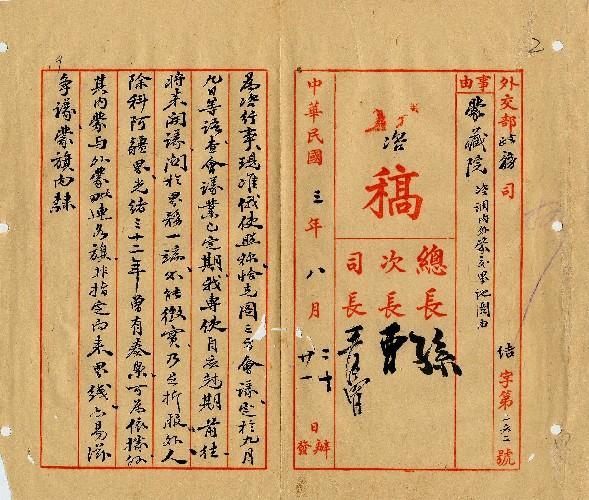 外交部政務司
結字第二六二號
事由
蒙藏院
咨調內外蒙交界地圖由
咨
稿
總長
孫
次長
曹
司長
中華民國三年八月
二十日辦
廿一發
為咨行事現准俄使照稱恰克圖三方會議定於九月
九日等語查會議業已定期我專使自應尅期前往
將來開議關於界務一端不能徵實乃足折服外人
除科阿疆界光緒三十二年曾有奏案可為依據外
其內蒙與外蒙毗連各旗非指定向來界綫亦易滋
爭議蒙旗向隸